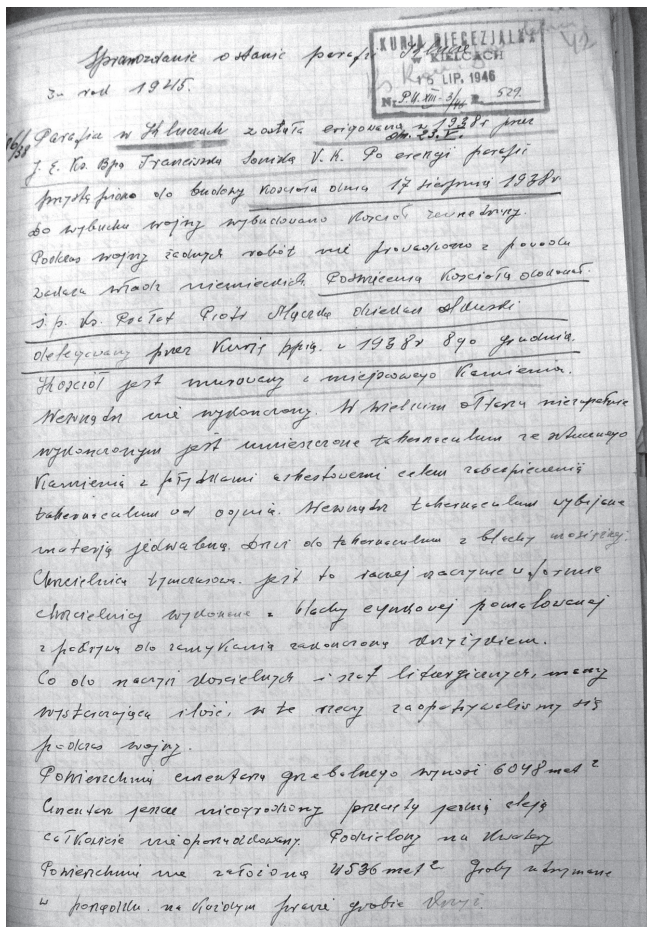 Sprawozdanie o stanie parafii Klucze
za rok 1945.
KURIA DIECEZJALNA
W KIELCACH
15 LIP. 1946
Nr P.U. XIII-3/46 P. 529.
42
Parafia w Kluczach została erigowana w 1938r przez
dn. 25.V.
J. E. Ks. Bpa Franciszka Sonika V. K. Po erekcji parafii
przystąpiono do budowy Kościoła dnia 17 sierpnia 1938r
Do wybuchu wojny wybudowano Kościół zewnętrzny.
Podczas wojny żadnych robót nie prowadzono z powodu
zakazu władz niemieckich. Poświęcenia Kościoła dokonał
ś. p. Ks. Prałat Piotr Mączka dziekan olkuski
delegowany przez Kurię w 1938r 8go grudnia.
Kościół jest murowany z miejscowego Kamienia.
Wewnątrz nie wykończony. W wielkim ołtarzu niezupełnie
wykończonym jest umieszczone tabernaculum ze sztucznego
Kamienia z płytkami asbestowemi celem zabezpieczenia
tabernaculum od ognia. Wewnątrz tabernaculum wybijane
materją jedwabną. Drzwi do tabernaculum z blachy mosiężnej.
Chrzcielnica tymczasowa. jest to raczej naczynie w formie
chrzcielnicy wykonane z blachy cynkowej pomalowanej
z pokrywą do zamykania zakończoną krzyżykiem.
Co do naczyń kościelnych i szat liturgicznych, mamy
wystarczającą ilość, w te rzeczy zaopatrywaliśmy się
podczas wojny.
Powierzchnia cmentarza grzebalnego wynosi 6048 met 2
Cmentarz jeszcze nieogrodzony przecięty jedną aleją
całkowicie Podzielony na kwatery
Powierzchnia nie założona 4536 met 2 Groby utrzymane
w porządku. na każdym prawie grobie krzyż